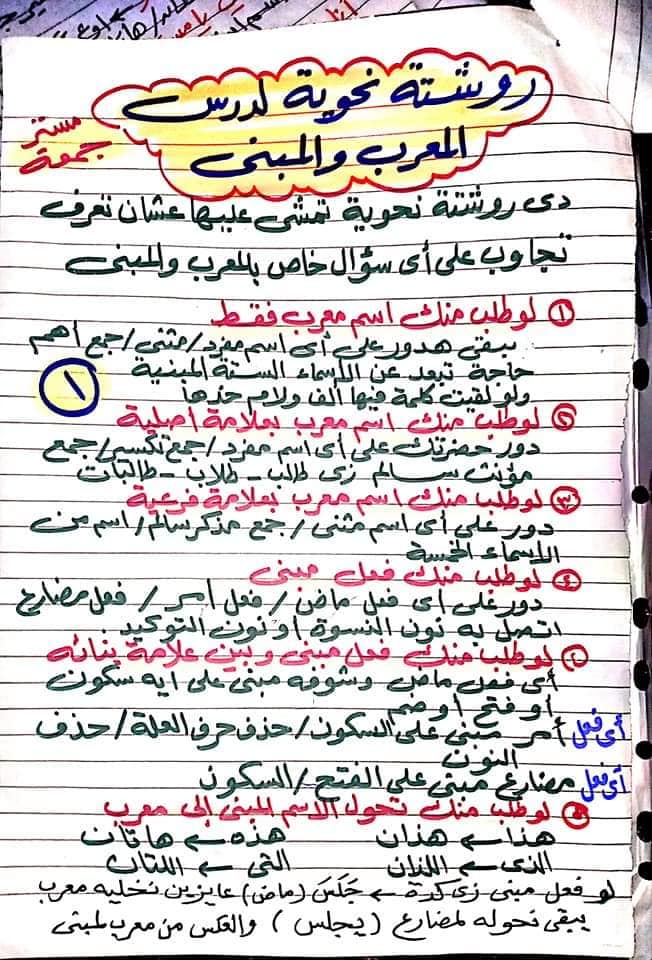 روشتة نحوية لدرس
المعرب والمبنى
مستر
جمعة
دى روشتة نحوية تمشى عليها عشان تعرف
تجاوب على أى سؤال خاص بالمعرب والمبنى
① لو طلب منك اسم معرب فقط
يبقى هدور على أى اسم مفرد/مثنى/جمع أهم
حاجة تبعد عن الأسماء الستة المبنية
ولو لقيت كلمة فيها ألف ولام خدها
١
② لو طلب منك اسم معرب بعلامة أصلية
دور حضرتك على أى اسم مفرد/جمع تكسير/جمع
مؤنث سالم زى طالب - طلاب - طالبات
③ لو طلب منك اسم معرب بعلامة فرعية
دور على أى اسم مثنى/جمع مذكر سالم/اسم من
الأسماء الخمسة
④ لو طلب منك فعل مبنى
دور على أى فعل ماض/فعل أمر/فعل مضارع
اتصل به نون النسوة أو نون التوكيد.
لو طلب منك فعل مبنى وبين علامة بنائه
أى فعل ماض وشوفه مبنى على ايه سكون
أو فتح أو ضم
أى فعل أمر مبنى على السكون/حذف حرف العلة/حذف
النون
أى فعل مضارع مبنى على الفتح/السكون
لو طلب منك تحول الاسم المبنى إلى معرب
هذا ← هذان هذه ← هاتان
الذي ← اللذان التى ← اللتان
لو فعل مبنى زى كدة ← جَلَسَ (ماض) عايزين نخليه معرب
يبقى نحوله لمضارع (يجلس) والعكس من معرب لمبنى